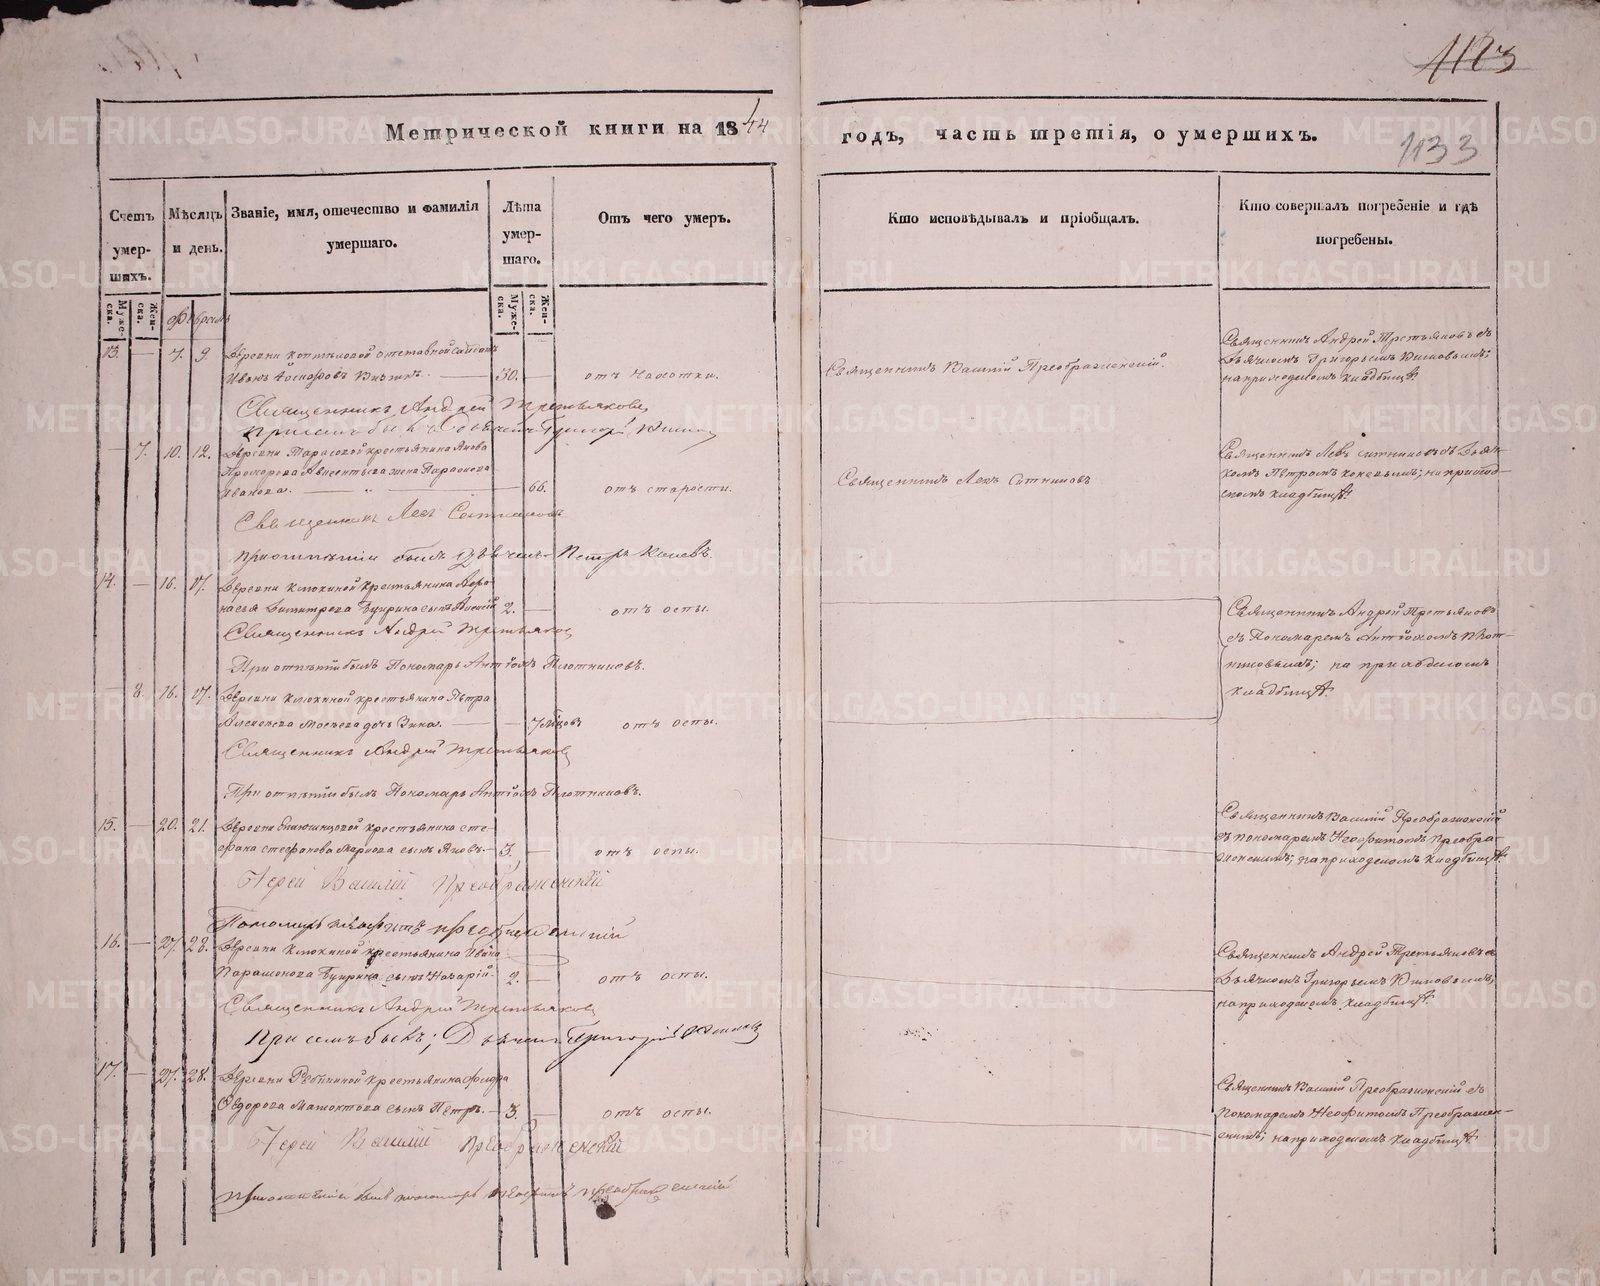 1123
Метрической книги на 1844
годъ, часть третія, о умершихъ.
1133
Счетъ умер-шихъ.
Мѣсяцъ и день.
Званіе, имя, отечество и фамилія умершаго.
Лѣта умер-шаго.
Отъ чего умер.
Кто исповѣдывалъ и пріобщалъ.
Кто совершалъ погребеніе и гдѣ погребены.
Муже-ска.
Жен-ска.
Муже-ска.
Жен-ска.
Февраль
13. — 7. 9. Деревни отставной
Иванъ — 30. — отъ чахотки.
Священникъ Василій Преображенскій.
Священникъ Андрей Третьяковъ съ
Дьячкомъ Григорьемъ
на приходскомъ кладбищѣ
Священникъ Андрей Третьяковъ
— 7. 10. 12. Деревни Тарасовой крестьянина Якова
Прохорова жена Параскова
Иванова. — 66. отъ старости.
Священникъ Левъ Ситниковъ
Священникъ Левъ Ситниковъ съ Дьяч-
комъ Петромъ на приход-
скомъ кладбищѣ
Священникъ Левъ Ситниковъ
при отпѣтіи былъ Петръ
14. — 16. 17. Деревни Клюкиной крестьянина Афо-
насья Димитрева сынъ Алексѣй 2. — отъ оспы.
Священникъ Андрей Третьяковъ
съ Пономаремъ Антіохомъ Плот-
никовымъ; на приходскомъ
кладбищѣ.
Священникъ Андрей Третьяковъ
При отпѣтіи былъ Пономарь Антіохъ Плотниковъ.
— 8. 16. 17. Деревни Клюкиной крестьянина Петра
Алексѣева дочь — 7 мѣсцовъ отъ оспы.
Священникъ Андрей Третьяковъ
При отпѣтіи былъ Пономарь Антіохъ Плотниковъ.
15. — 20. 21. Деревни крестьянина Сте-
фана Стефанова сынъ Яковъ. — 3. — отъ оспы.
Священникъ Василій Преображенскій
съ пономаремъ Неофитомъ Преобра-
женскимъ; на приходскомъ кладбищѣ.
Іерей Василій Преображенскій
Пономарь Неофитъ Преображенскій
16. — 27. 28. Деревни Клюкиной крестьянина Ивана
Парамонова сынъ Назарій. 2. — отъ оспы.
Священникъ Андрей Третьяковъ съ
Дьячкомъ Григорьемъ
на приходскомъ кладбищѣ
Священникъ Андрей Третьяковъ
При семъ былъ; Дьячекъ Григорій
17. — 27. 28. Деревни крестьянина Федора
Федорова сынъ Петръ. — 3. — отъ оспы.
Священникъ Василій Преображенскій съ
пономаремъ Неофитомъ Преображен-
скимъ; на приходскомъ кладбищѣ
Іерей Василій Преображенскій
при отпѣтіи былъ пономарь Неофитъ Преображенскій
METRIKI.GASO-URAL.RU